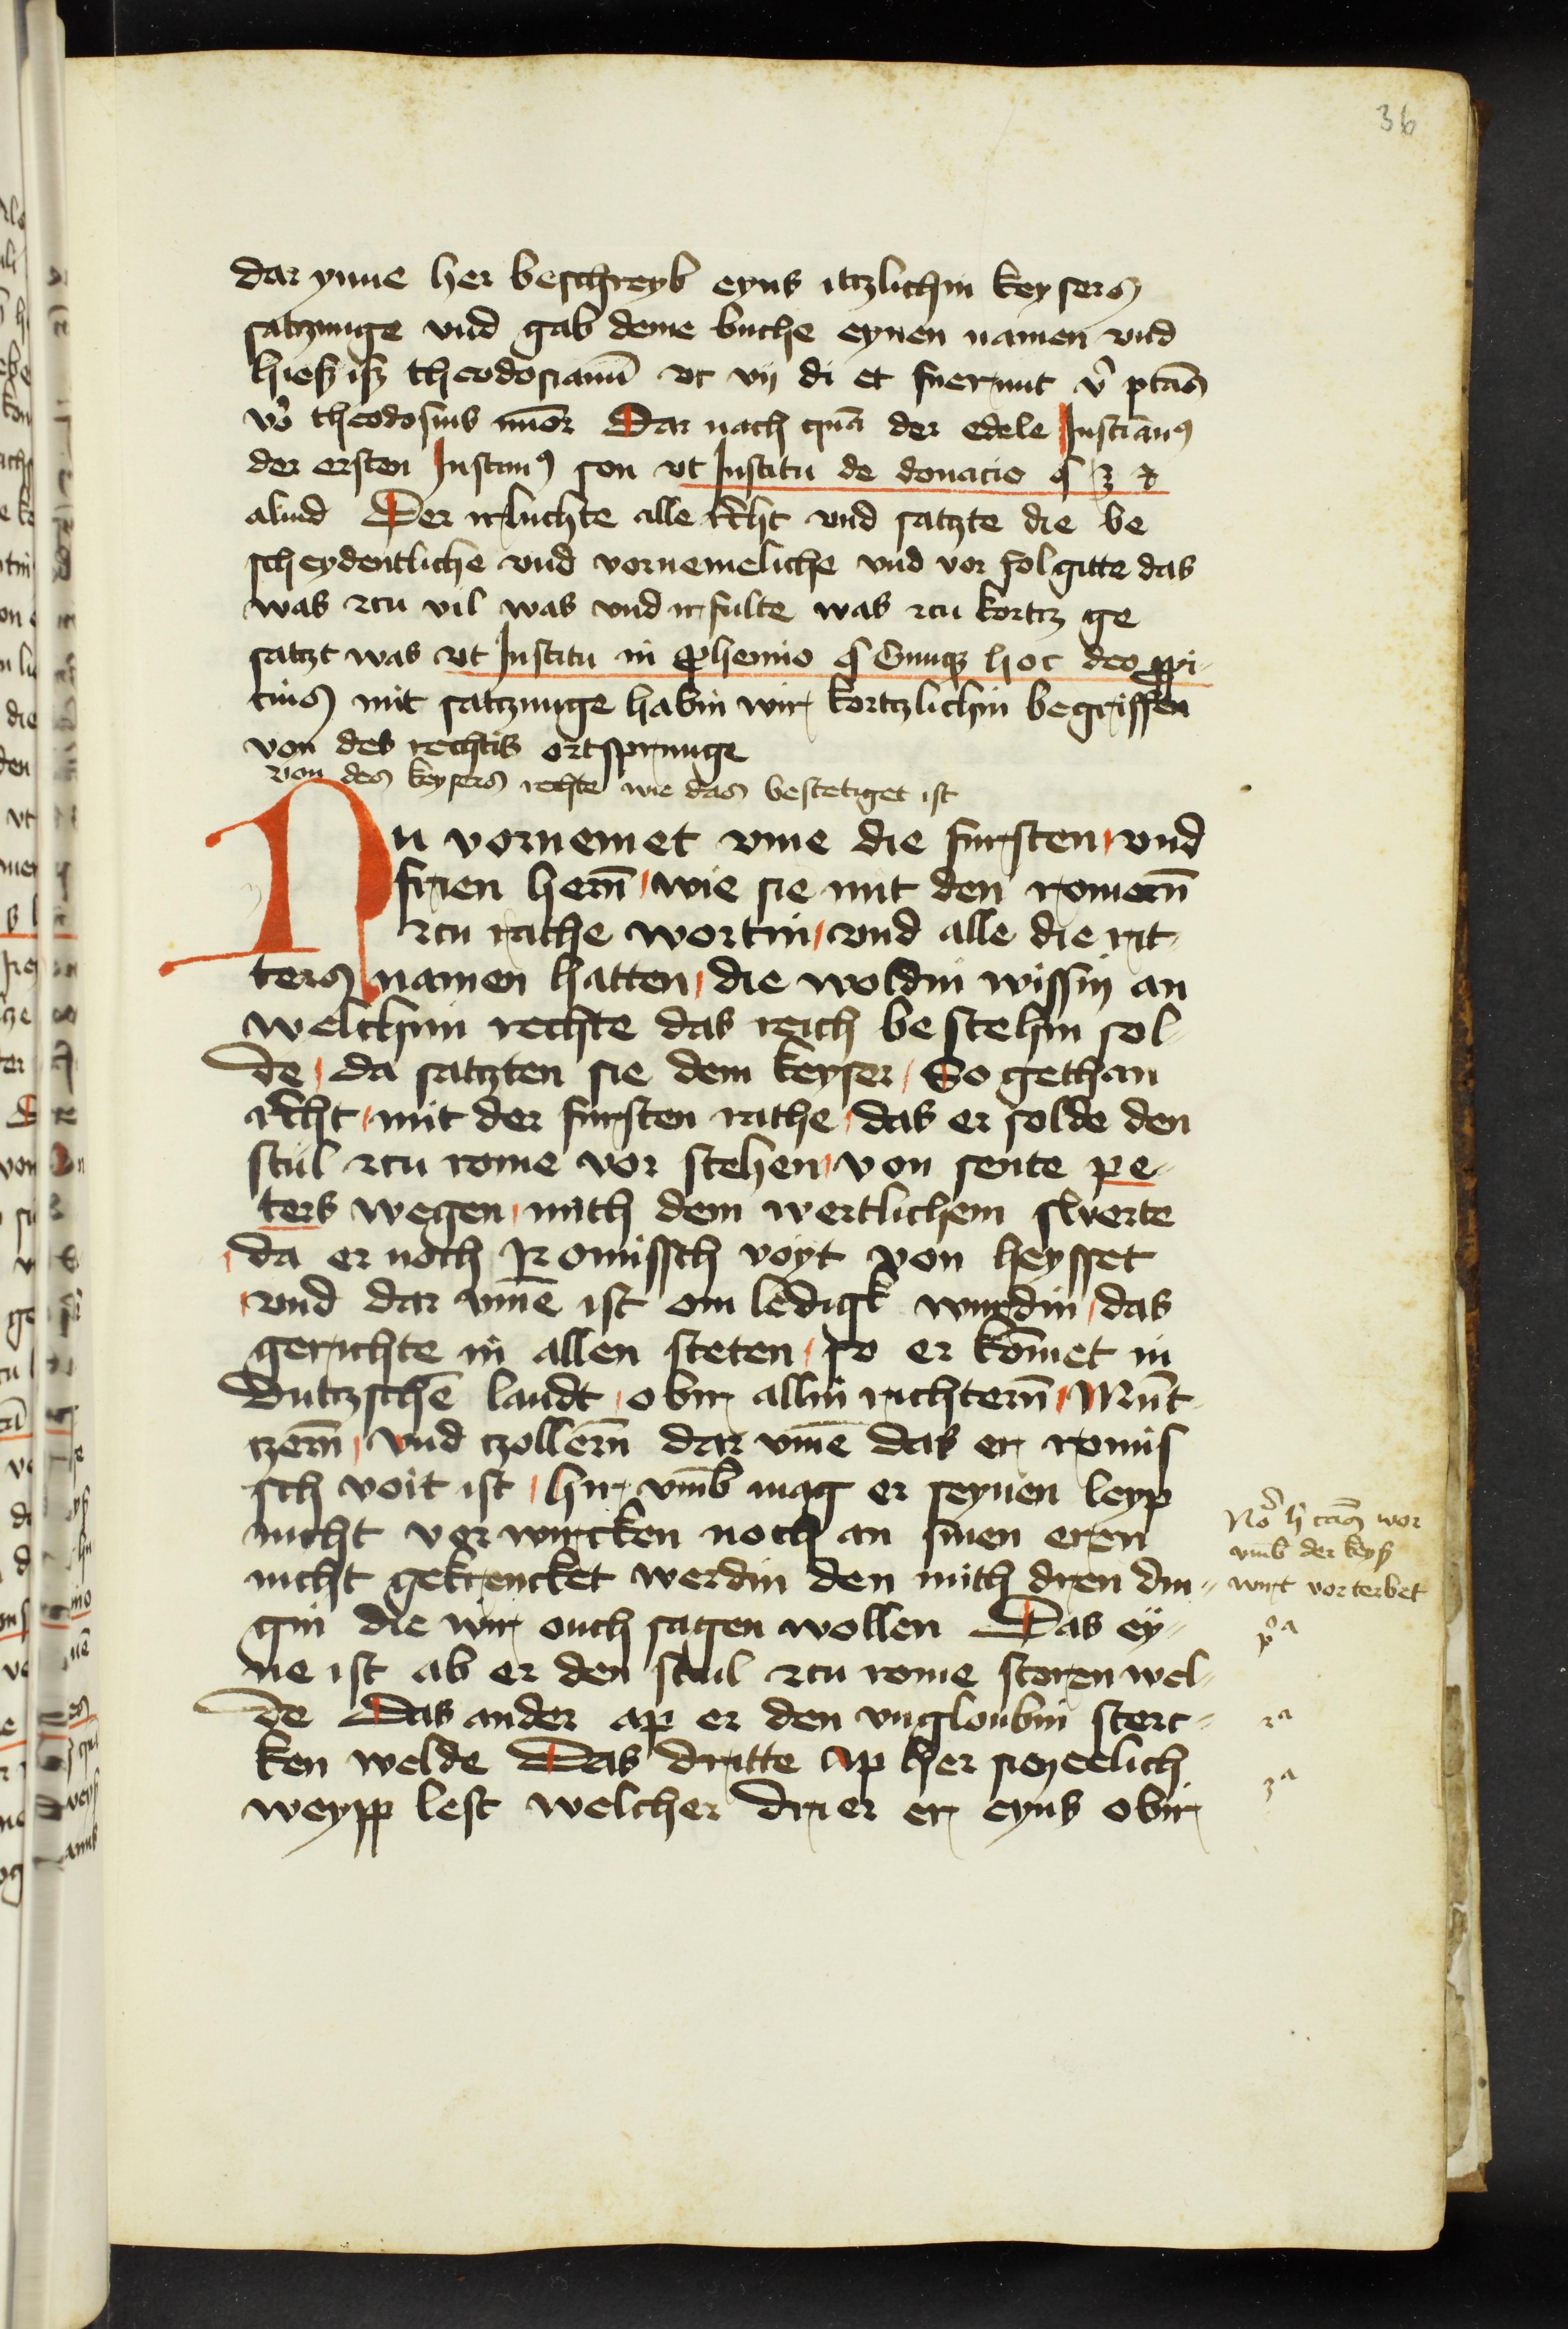 36
dar ynne her beschreyb eyns itzlichin keysers
satzunge vnd gab deme buche eynen namen vnd
hiesz isz theodosianū vt vij di et fuerunt
theodosius mīor Dar nach quā der edele Justiānꝰ
der ersten Justinꝰ son vt Institu de donacio § 3 &
aliud Der irluchte alle recht vnd satzte die be
scheydentliche vnd vornemeliche vnd vor folgitte das
was zcu vil was vnd irfulte was zcu kortz ge
satzt was vt Institu in phemio § Cumqz hoc deo ppi-
cius mit satzunge habin wir kortzlichin begriffen
von des rechtis ortsprunge
Von des keysers rechte wie das bestetiget ist
Nu vornemet vme die fursten vnd
frien herrn wie sie mit den romern
zcu rathe wortin vnd alle die rit-
ters namen hatten die woldin wissin an
welchim rechte das reich bestehin sol-
de da satzten sie dem keyser So gethan
recht mit der fursten rathe das er solde den
stul zcu rome vor stehen von sente pe-
ters wegen mith dem wertlichem swerte
da er noch Romissch voyt von heysset
vnd dar vmē ist om ledigk wurdin das
gerichte in allen steten so er kōmet in
Dutzschē landt obir allin richtern Munt
tzern vnd tzollern dar vmē das er romis
sch voit ist hir vmb mag er seynen leyp
nicht vorwircken noch an sinen eren
nicht gekrencket werdin den mith dren din-
gin die wir ouch sagen wollen Das ey-
ne ist ab er den stul zcu rome storen wel-
de Das ander ap er den vngloubin sterc-
ken welde Das dritte ap her sieneelich
weypp lest welcher drier er eyns obir
wor
vmb der keyß
wirt vorterbet
pᵒa
2a
3a